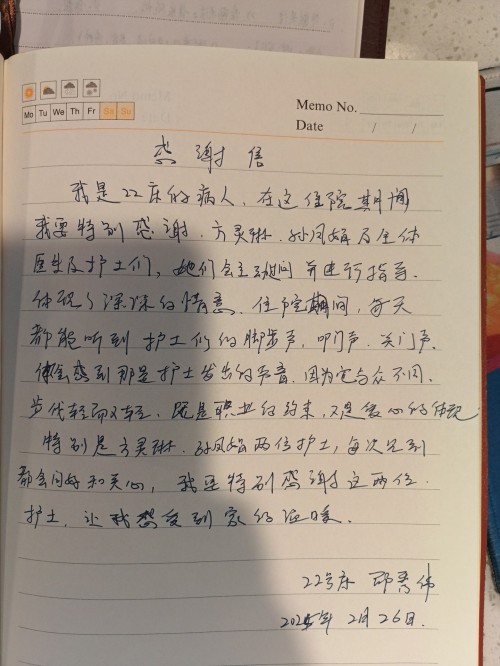 Mo Tu We Th Fr Sa Su
Memo No.
Date / /
感谢信
我是22床的病人、在这住院期间
我要特别感谢、方灵琳、孙凤娟及全体
医生及护士们，她们会主动询问并进行指导、
体现了深深的情意、住院期间，每天
都能听到护士们的脚步声、叩门声、关门声、
体会感到那是护士发出的声音、因为它与众不同、
步伐轻而又轻、既是职业的约束，又是爱心的体现
特别是方灵琳、孙凤娟两位护士，每次见到
都会问好和关心，我要特别感谢这两位
护士，让我感受到家的温暖、
22号床 邵
2025年2月26日